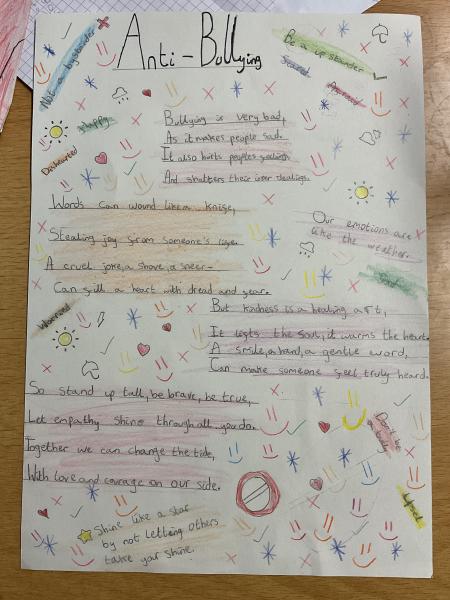 Anti-Bullying
Not a bystander
Be a upstander
Scared
Happy
Bullying is very bad,
As it makes people sad.
It also hurts peoples feelings
And shatters their inner dealings.
Words can wound like a knife,
Stealing joy from someone's life.
A cruel joke, a shove, a sneer-
Can fill a heart with dread and fear.
Our emotions are
like the weather.
Worried
But kindness is a healing art,
It lights the soul, it warms the heart.
A smile, a hand, a gentle word,
Can make someone feel truly heard.
So stand up tall, be brave, be true,
Let empathy shine through all you do.
Together we can change the tide,
With love and courage on our side.
Don't be
a bully
Shine like a star
by not letting others
take your shine.